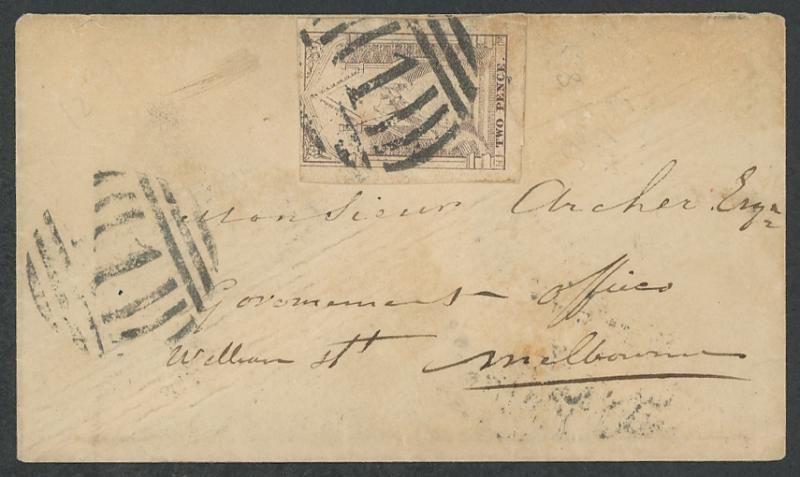 TWO PENCE.
1
1
Monsieur Archer Esqr
Government office
William st
Melbourne